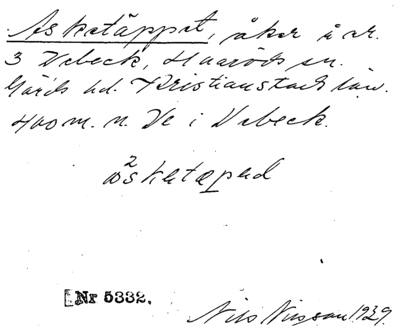 Asketäppet, åker å nr.
3 Vebeck, Huaröds sn.
Gärds hd. Kristianstads län.
400 m. n. Ve i Vebeck.
2
askatæped
[Nr 5332.
Nils Nilsson 1929.